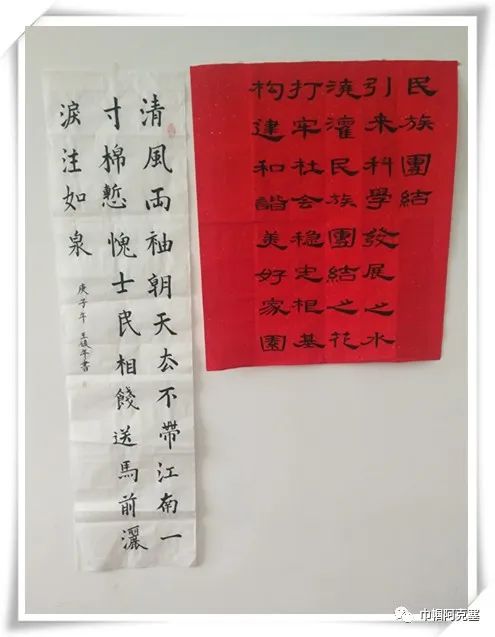 清風兩袖朝天去不帶江南一
寸棉慙愧士民相餞送馬前灑
淚注如泉
庚子年 王 年書
民族團結
引来科學發展之水
澆灌民族團結之花
打牢社会稳定根基
构建和諧美好家園
巾帼阿克塞